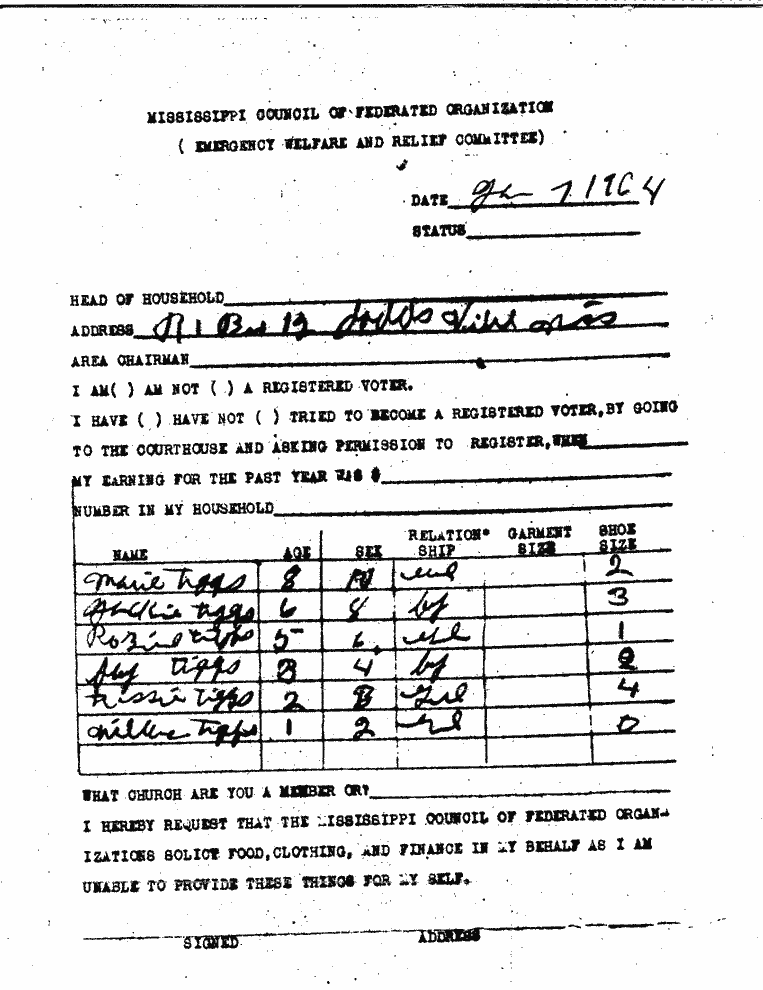 MISSISSIPPI COUNCIL OF FEDERATED ORGANIZATION
( EMERGENCY WELFARE AND RELIEF COMMITTEE)
DATE Jan 7 1964
STATUS
HEAD OF HOUSEHOLD
ADDRESS R 1 Box 13
AREA CHAIRMAN
I AM( ) AM NOT ( ) A REGISTERED VOTER.
I HAVE ( ) HAVE NOT ( ) TRIED TO BECOME A REGISTERED VOTER,BY GOING
TO THE COURTHOUSE AND ASKING PERMISSION TO REGISTER,WHEN
MY EARNING FOR THE PAST YEAR WAS $
NUMBER IN MY HOUSEHOLD
NAME AGE SEX RELATION* SHIP GARMENT SIZE SHOE SIZE
Marie Tiggs 8 2
Jackie Tiggs 6 8 by 3
Tiggs 5 6 1
Tiggs 3 4 by 2
Tiggs 2 4
Willie Tiggs 1 2 0
WHAT CHURCH ARE YOU A MEMBER OR?
I HEREBY REQUEST THAT THE MISSISSIPPI COUNCIL OF FEDERATED ORGAN-
IZATIONS SOLICT FOOD,CLOTHING, AND FINANCE IN MY BEHALF AS I AM
UNABLE TO PROVIDE THESE THINGS FOR MY SELF.
SIGNED ADDRESS